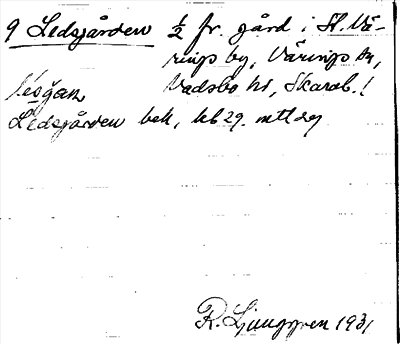 9 Ledsgården ½ fr. gård i St. Vä-
rings by, Värings sn,
Vadsbo hd, Skarab. l
Lesgan
Ledsgården bek, kb 29. mtl
R. Ljunggren 1931